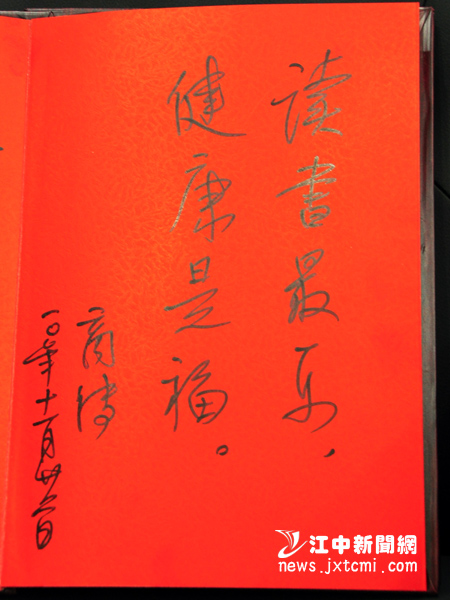 读书最乐、
健康是福。
商傳
一〇年十一月廿日
江中新聞網
news.jxtcmi.com